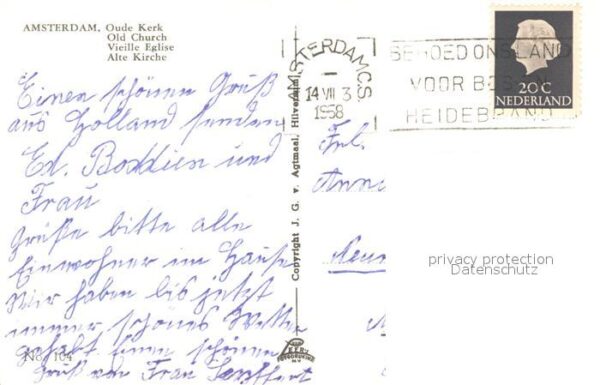 AMSTERDAM, Oude Kerk
Old Church
Vieille Eglise
Alte Kirche
Einen schönen Gruß
aus Holland senden
Ed. Boddien und
Frau
Grüße bitte alle
Einwohner im Hause
Wir haben bis jetzt
immer schönes Wetter
gehabt einen schönen
Gruß von Frau
No. 104
Copyright J. G. v. Agtmaal, Hilversum
AMSTERDAM C.S
14 VII 3
1958
BEHOED ONS LAND
VOOR BOS EN
HEIDEBRAND
20 C
NEDERLAND
Frl.
privacy protection
Datenschutz